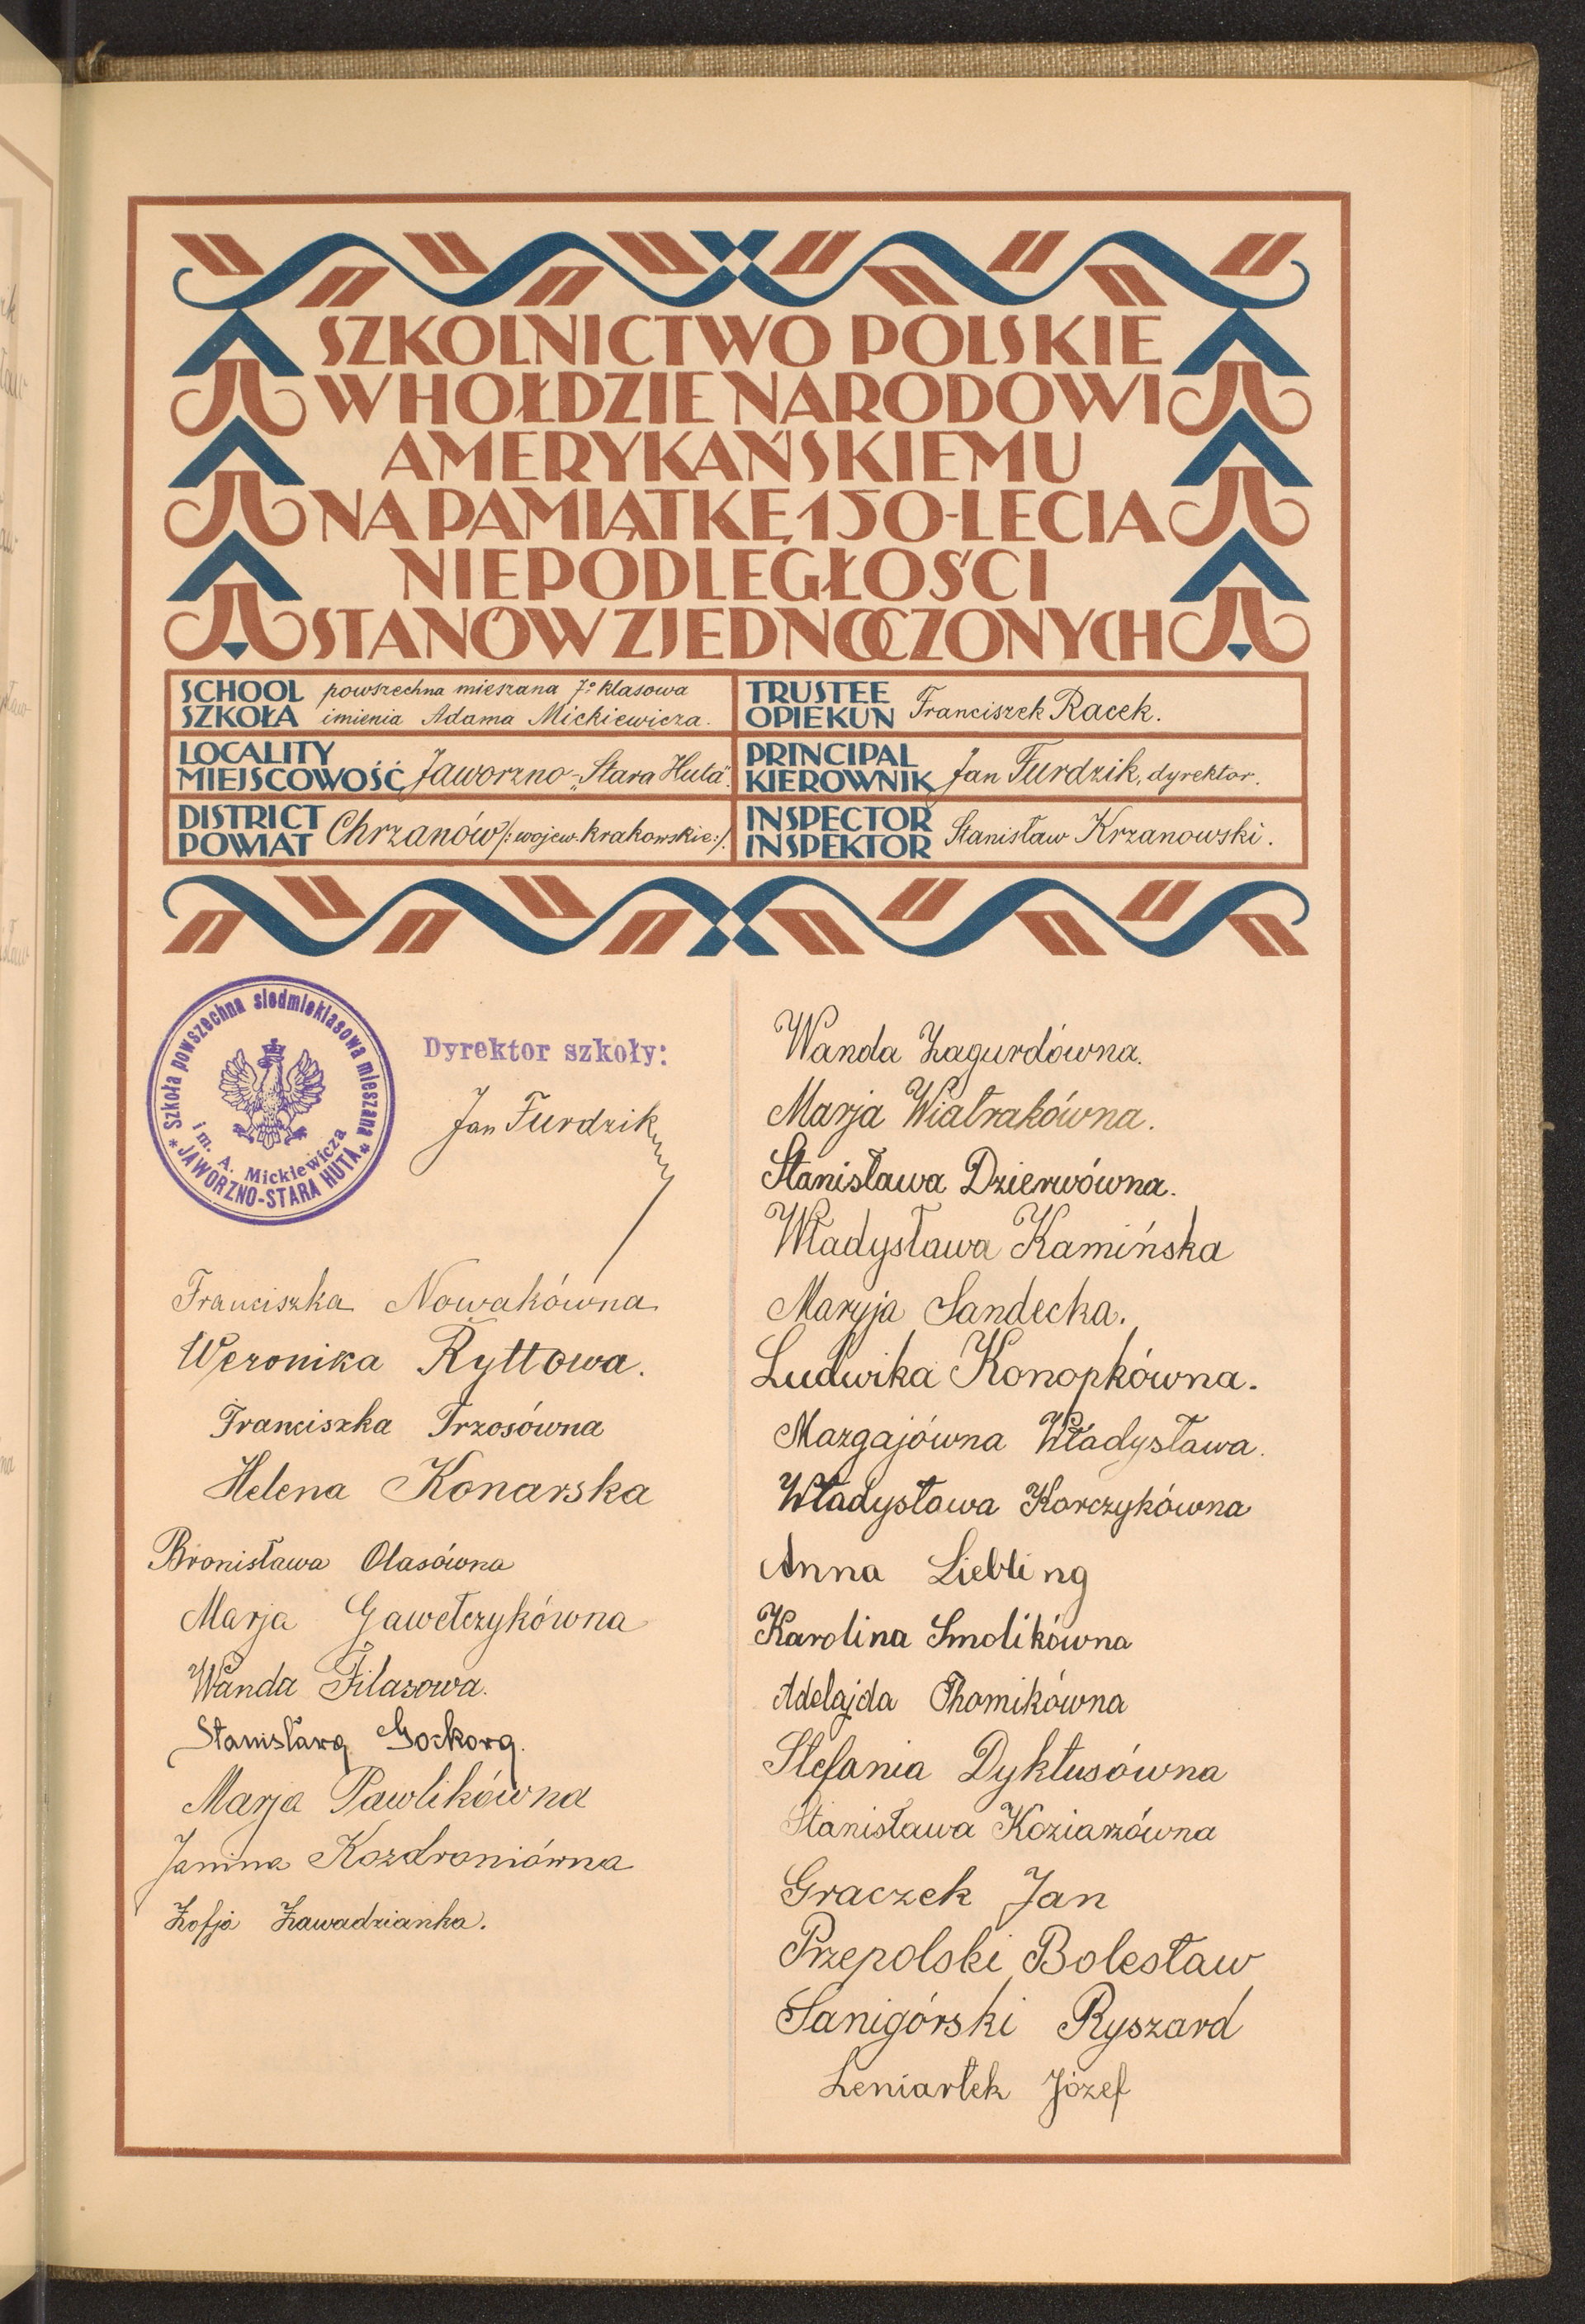 SZKOLNICTWO POLSKIE
W HOŁDZIE NARODOWI
AMERYKAŃSKIEMU
NA PAMIĄTKĘ 150-LECIA
NIEPODLEGŁOŚCI
STANÓW ZJEDNOCZONYCH
SCHOOL
SZKOŁA
powszechna mieszana 7º klasowa
imienia Adama Mickiewicza.
TRUSTEE
OPIEKUN
Franciszek Racek.
LOCALITY
MIEJSCOWOŚĆ
Jaworzno-„Stara Huta".
PRINCIPAL
KIEROWNIK
Jan Furdzik, dyrektor.
DISTRICT
POWIAT
Chrzanów /: wojew. krakowskie :/.
INSPECTOR
INSPEKTOR
Stanisław Krzanowski.
* Szkoła powszechna siedmioklasowa mieszana *
im. A. Mickiewicza
JAWORZNO-STARA HUTA
Dyrektor szkoły:
Jan Furdzik
Franciszka Nowakówna
Weronika Ryttowa.
Franciszka Trzosówna
Helena Konarska
Bronisława Olasówna
Marja Gawełczykówna
Wanda Filasowa.
Marja Pawlikówna
Janina Kozdroniówna
Zofja Zawadzianka.
Wanda Zagurdówna.
Marja Wiatrakówna.
Stanisława Dzierwówna.
Władysława Kamińska
Maryja Sandecka.
Ludwika Konopkówna.
Mazgajówna Władysława.
Władysława Korczykówna
Anna Liebling
Karolina Smolikówna
Adelajda Chomikówna
Stefania Dyktusówna
Stanisława Koziarzówna
Graczek Jan
Przepolski Bolesław
Sanigórski Ryszard
Leniartek Józef